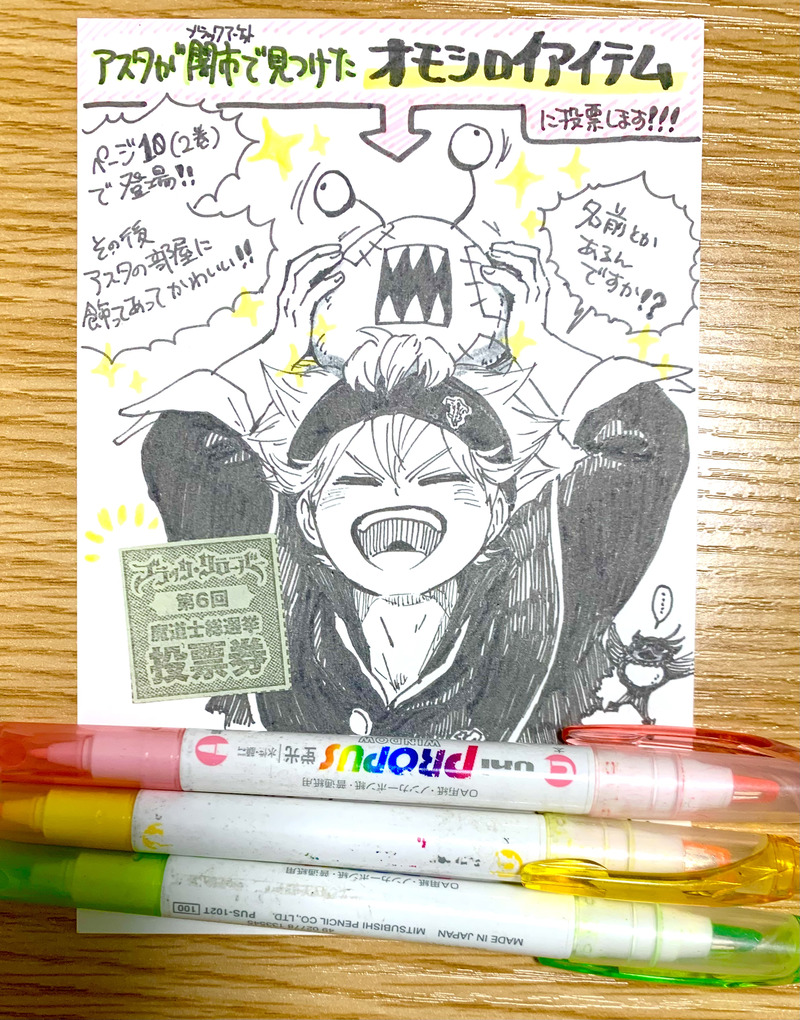 ブラックマーケット
アスタが闇市で見つけた オモシロイアイテム
に投票します!!!
ページ10(2巻)
で登場!!
その後
アスタの部屋に
飾ってあってかわいい!!
名前とか
あるん
ですか!?
……
ブラッククローバー
第6回
魔道士総選挙
投票券
uni PROPUS 蛍光
WINDOW
OA用紙・ノンカーボン紙・普通紙用
OA用紙・ノンカーボン紙・普通紙用
MADE IN JAPAN MITSUBISHI PENCIL CO.,LTD. PUS-102T 100